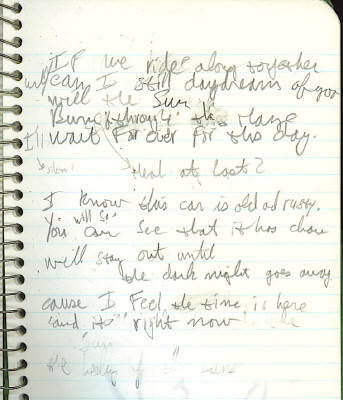 If we ride along together
will can I still daydream of you
will the Sun
Burn through the Haze
I'll wait for over for this day.
silent
Heal at last?
I know this car is old ad rusty.
will see
You can see that it has
we'll stay out until
the dark night goes away
cause I Feel the time is here
and its right now the
Sun
the